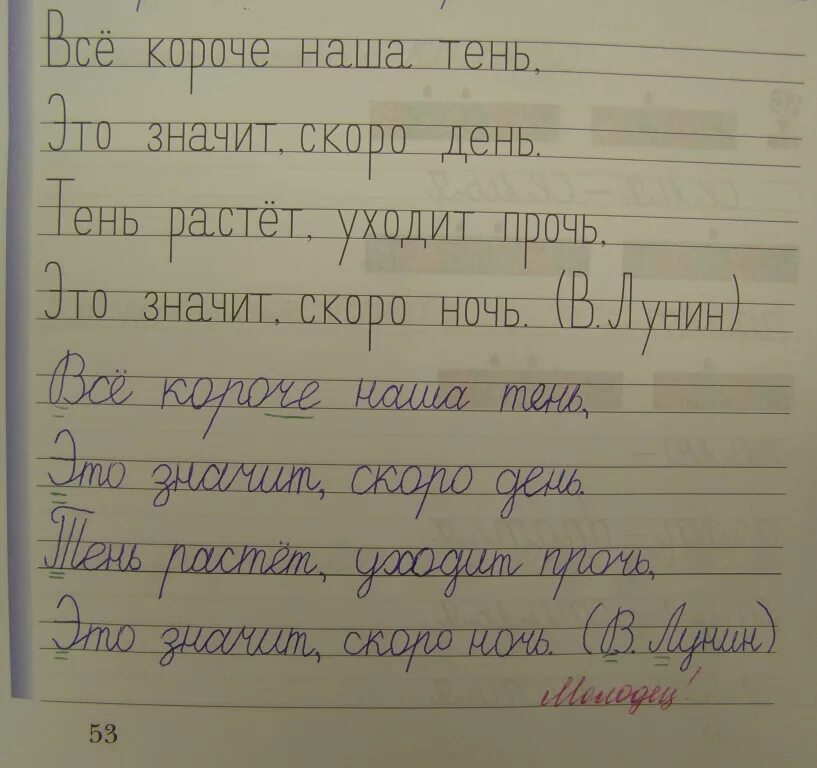 Всё короче наша тень,
Это значит, скоро день.
Тень растёт, уходит прочь,
Это значит, скоро ночь. (В. Лунин)
Всё короче наша тень,
Это значит, скоро день.
Тень растёт, уходит прочь,
Это значит, скоро ночь. (В. Лунин)
Молодец!
53